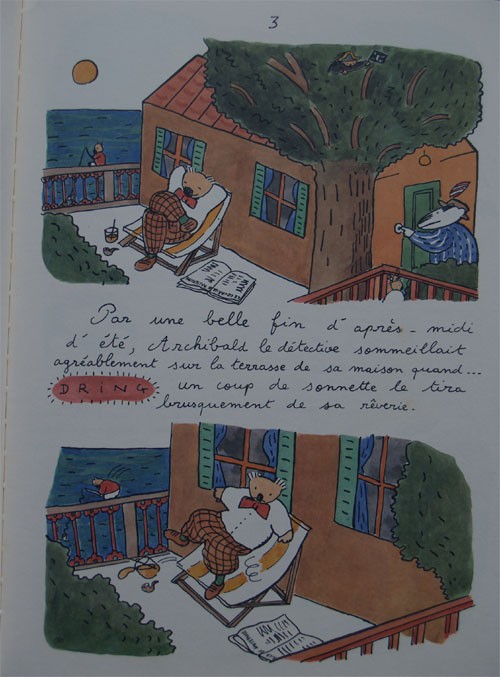 3
Par une belle fin d'après-midi
d'été, Archibald le détective sommeillait
agréablement sur la terrasse de sa maison quand...
DRING un coup de sonnette le tira
brusquement de sa rêverie.